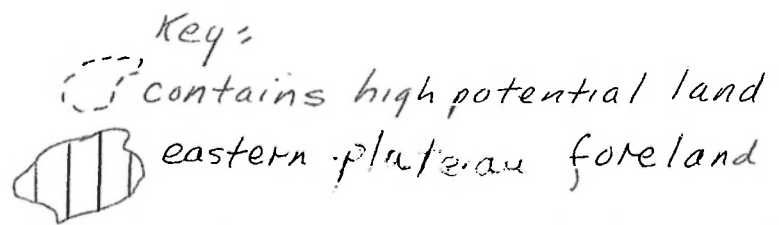 Key:
contains high potential land
eastern plateau foreland